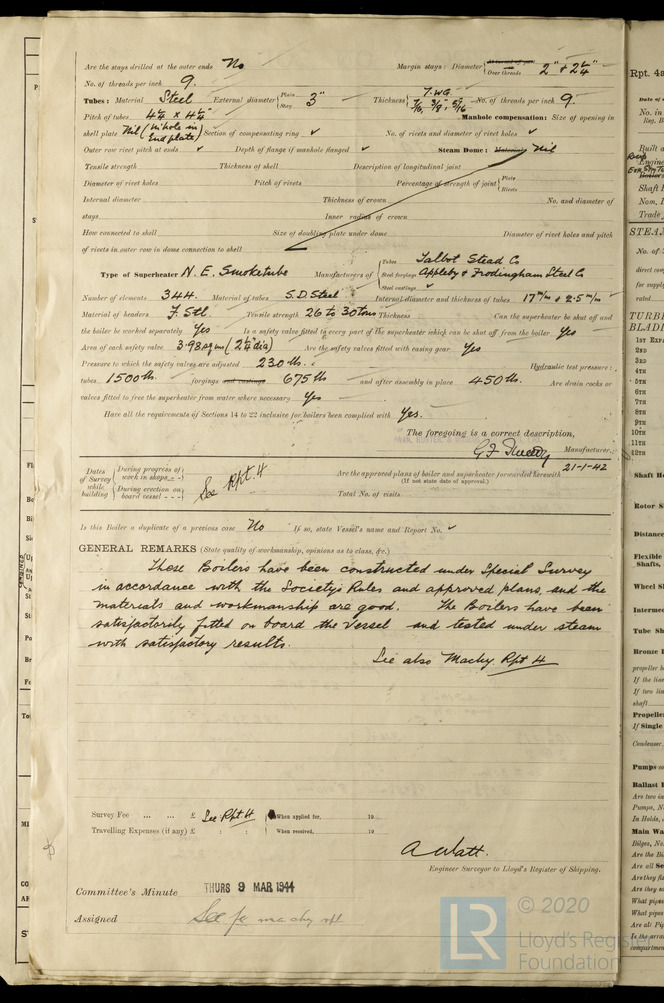 Are the stays drilled at the outer ends No Margin stays: Diameter { Over threads 2" & 2¼"
No. of threads per inch 9.
Tubes: Material Steel External diameter { Plain Stay 3" Thickness { 7.WG 7/16, 3/8", 5/16 No. of threads per inch 9.
Pitch of tubes 4¼" x 4¼" Manhole compensation: Size of opening in
shell plate Nil (in hole in End plate) Section of compensating ring ✓ No. of rivets and diameter of rivet holes ✓
Outer row rivet pitch at ends ✓ Depth of flange if manhole flanged ✓ Steam Dome: Material Nil
Tensile strength Thickness of shell Description of longitudinal joint
Diameter of rivet holes Pitch of rivets Percentage of strength of joint { Plate Rivets
Internal diameter Thickness of crown No. and diameter of
stays Inner radius of crown
How connected to shell Size of doubling plate under dome Diameter of rivet holes and pitch
of rivets in outer row in dome connection to shell
Type of Superheater N.E. Smoketube Manufacturers of { Tubes Talbot Stead Co
Steel forgings Appleby & Frodingham Steel Co
Steel castings ✓
Number of elements 344. Material of tubes S.D. Steel Internal diameter and thickness of tubes 17 m/m & 2.5 m/m
Material of headers F. Stl. Tensile strength 26 to 30 tons Thickness Can the superheater be shut off and
the boiler be worked separately Yes Is a safety valve fitted to every part of the superheater which can be shut off from the boiler Yes
Area of each safety valve 3.98 sq ins (2¼" dia) Are the safety valves fitted with easing gear Yes
Pressure to which the safety valves are adjusted 230 lb. Hydraulic test pressure:
tubes 1500 lb. forgings and castings 675 lb and after assembly in place 450 lb. Are drain cocks or
valves fitted to free the superheater from water where necessary Yes
Have all the requirements of Sections 14 to 22 inclusive for boilers been complied with Yes.
The foregoing is a correct description,
Manufacturer.
21-1-42
Dates of Survey while building { During progress of work in shops - - } See Rpt. 4 Are the approved plans of boiler and superheater forwarded herewith
(If not state date of approval.)
{ During erection on board vessel - - - } Total No. of visits
Is this Boiler a duplicate of a previous case No If so, state Vessel's name and Report No. ✓
GENERAL REMARKS (State quality of workmanship, opinions as to class, &c.)
These Boilers have been constructed under Special Survey
in accordance with the Society's Rules and approved plans, and the
materials and workmanship are good. The Boilers have been
satisfactorily fitted on board the vessel and tested under steam
with satisfactory results.
See also Machy. Rpt 4
Survey Fee ... ... £ See Rpt. 4 When applied for, 19
Travelling Expenses (if any) £ : : When received, 19
A Watt.
Engineer Surveyor to Lloyd's Register of Shipping.
Committee's Minute THURS 9 MAR 1944
Assigned See fe machy rpt
LR © 2020
Lloyd's Register
Foundation
Rpt. 4a